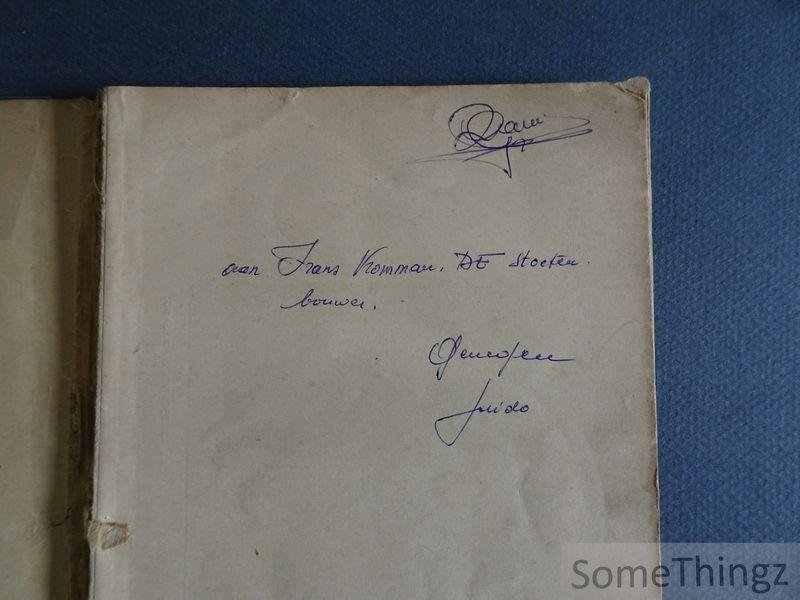 aan Frans Kommar. DE stoeten.
bouwer.
Genegen
Guido
SomeThingz